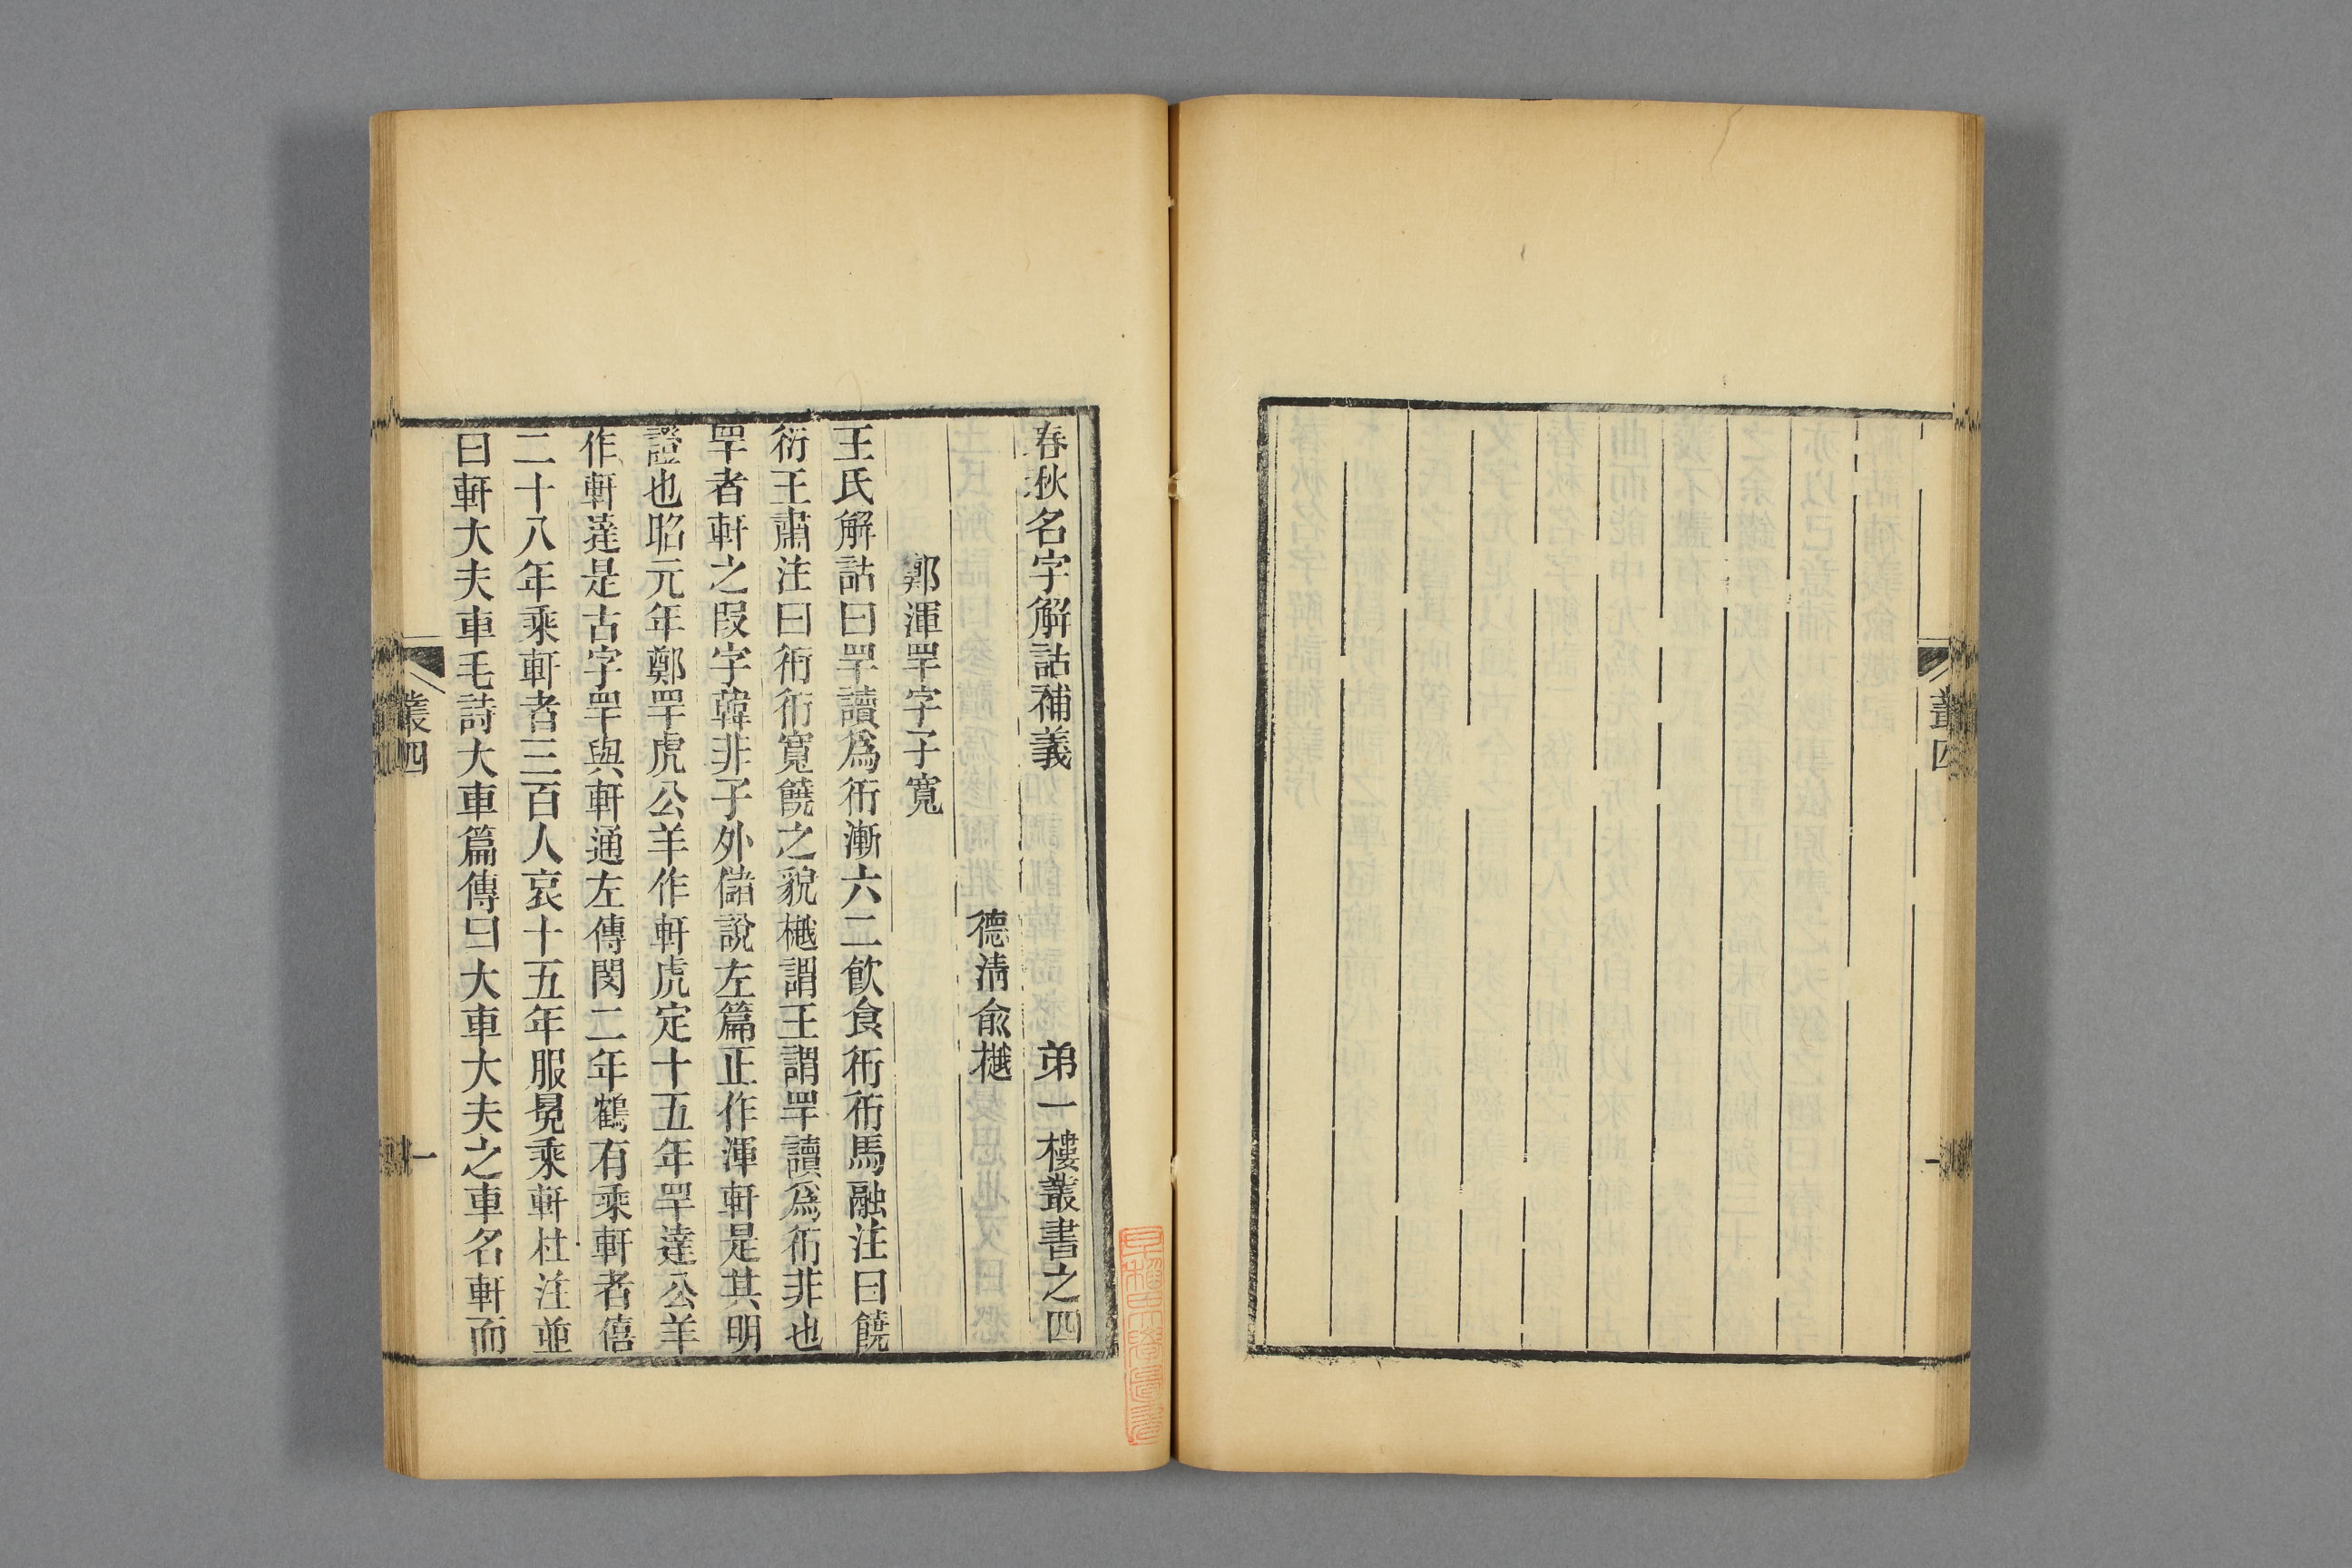 叢四
一
春秋名字解詁補義　弟一樓叢書之四
德清俞樾
鄭渾罕字子寬
王氏解詁曰罕讀爲衎漸六二飲食衎衎馬融注曰饒
衍王肅注曰衎衎寬饒之貌樾謂王謂罕讀爲衎非也
罕者軒之叚字韓非子外儲說左篇正作渾軒是其明
證也昭元年鄭罕虎公羊作軒虎定十五年罕達公羊
作軒達是古字罕與軒通左傳閔二年鶴有乘軒者僖
二十八年乘軒者三百人哀十五年服冕乘軒杜注並
曰軒大夫車毛詩大車篇傳曰大車大夫之車名軒而
叢四
一